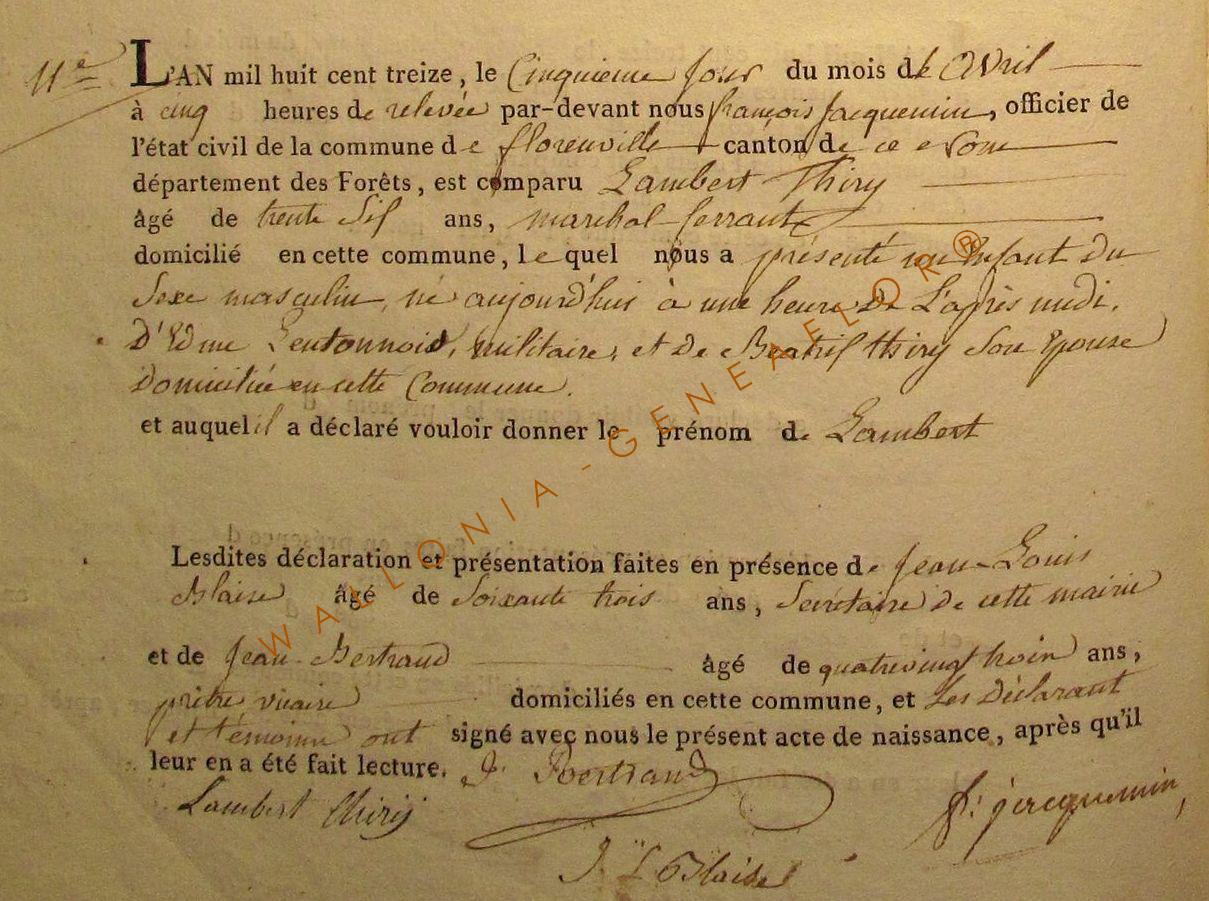 11e
L'AN mil huit cent treize, le Cinquieme Jour du mois de Avril
à cinq heures de relevée par-devant nous françois Jacquemin, officier de
l'état civil de la commune de florenville canton de ce
département des Forêts, est comparu Lambert Thiry
âgé de trente Six ans, marechal ferrant
domicilié en cette commune, lequel nous a présenté un Enfant du
Sexe masculin, né aujourd'huis à une heure de L'après midi.
D'Edme militaire, et de Beatrix thiry Son Epouse
domiciliée en cette Commune.
et auquel il a déclaré vouloir donner le prénom de Lambert
Lesdites déclaration et présentation faites en présence de Jean Louis
Blaise âgé de Soixante trois ans, Secrétaire de cette mairie
et de Jean Bertrand âgé de quatrevingt trois ans,
prêtre vicaire domiciliés en cette commune, et Les Déclarant
et témoins ont signé avec nous le présent acte de naissance, après qu'il
leur en a été fait lecture. J. Bertrand
Lambert Thirij f: jacquemin,
J L Blaise
WALLONIA-GENEAELOR®